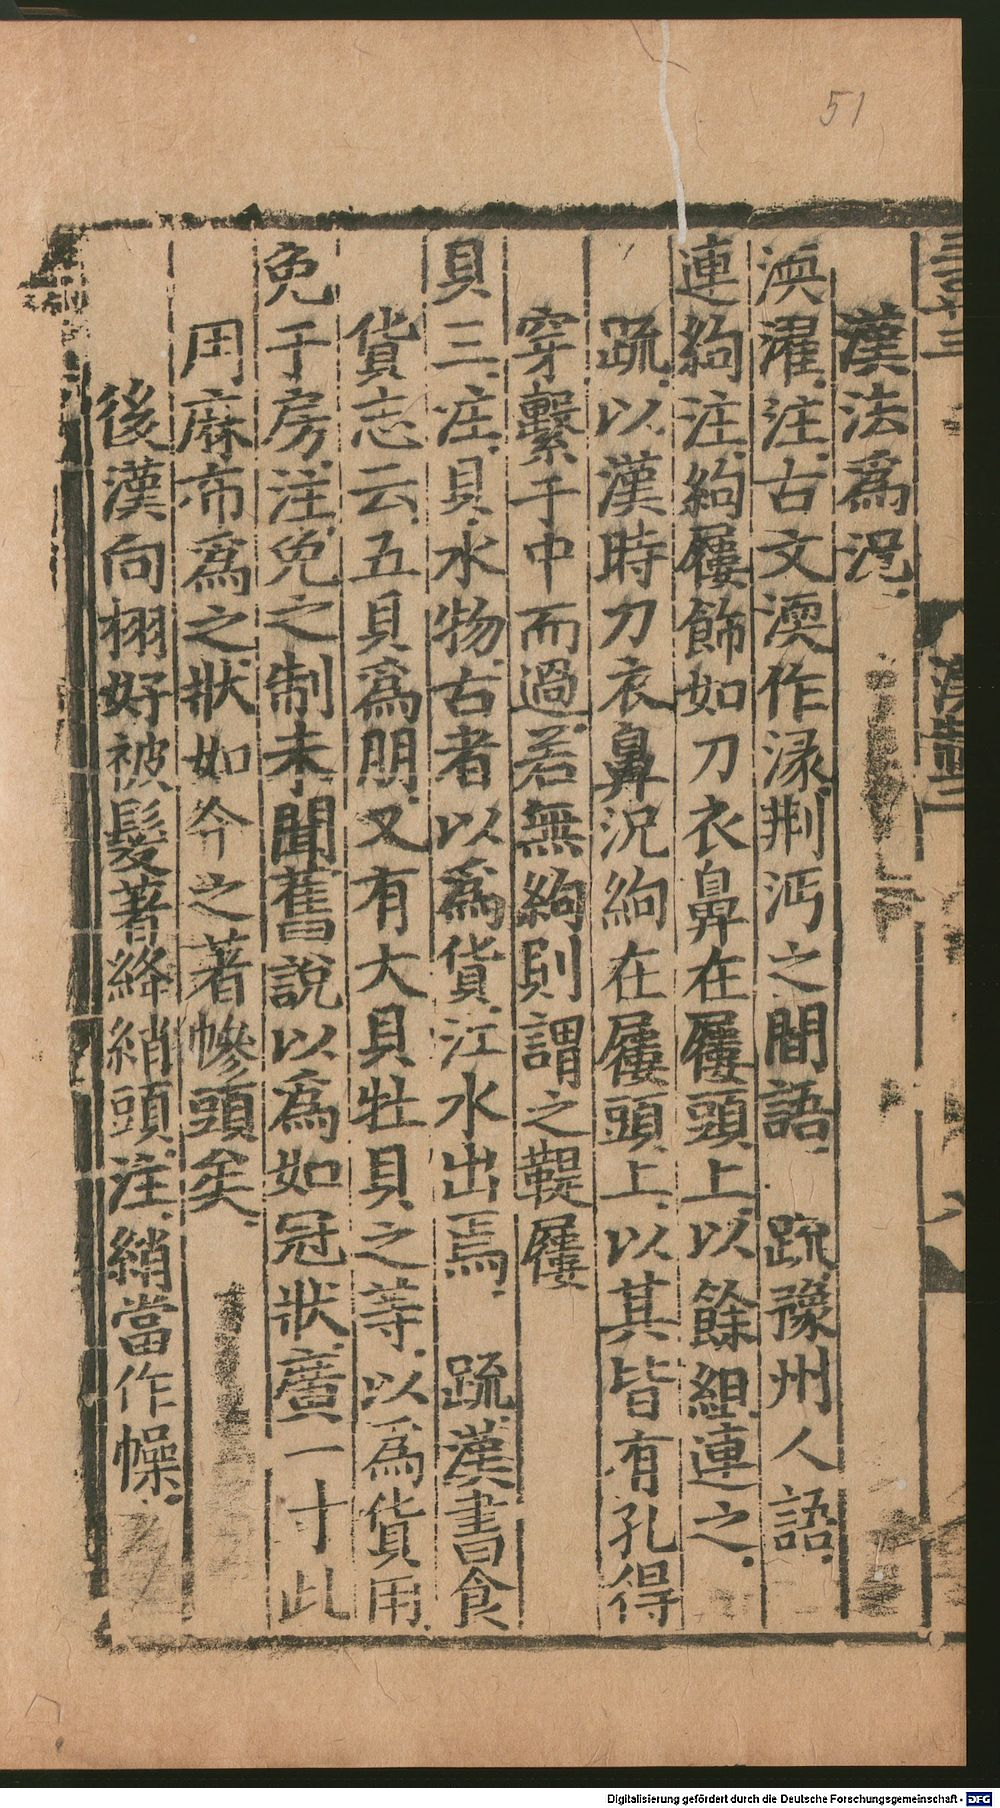 51
漢制二
漢法爲況
渜濯注古文渜作湪荆沔之間語 疏豫州人語
連絇注絇屨飾如刀衣鼻在屨頭上以餘組連之
疏以漢時刀衣鼻況絇在屨頭上以其皆有孔得
穿繫于中而過若無絇則謂之鞮屨
貝三注貝水物古者以爲貨江水出焉 疏漢書食
貨志云五貝爲朋又有大貝牡貝之等以爲貨用
免于房注免之制未聞舊說以爲如冠狀廣一寸此
用麻布爲之狀如今之著幓頭矣
後漢向栩好被髮著絳綃頭注綃當作幧
Digitalisierung gefördert durch die Deutsche Forschungsgemeinschaft - DFG